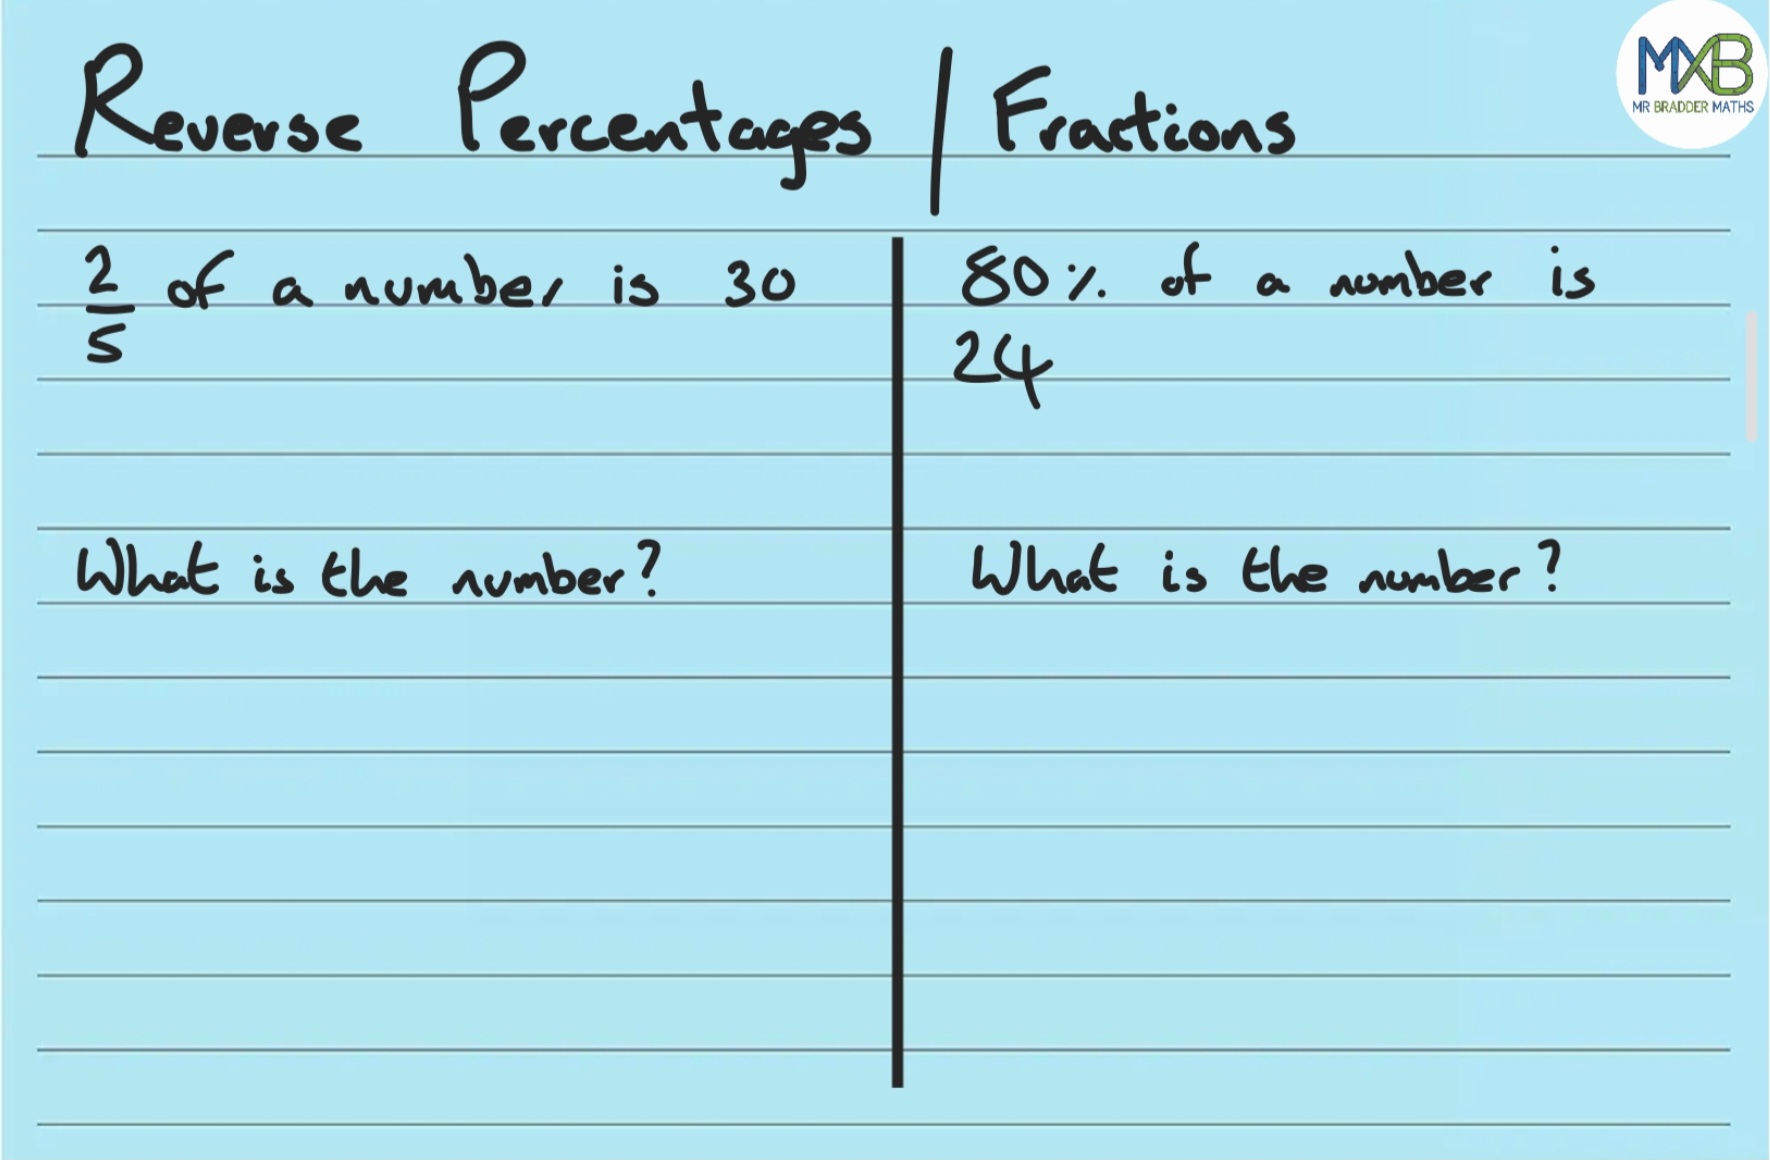 Reverse Percentages / Fractions
MXB
MR BRADDER MATHS
2/5 of a number is 30
What is the number?
80% of a number is
24
What is the number?